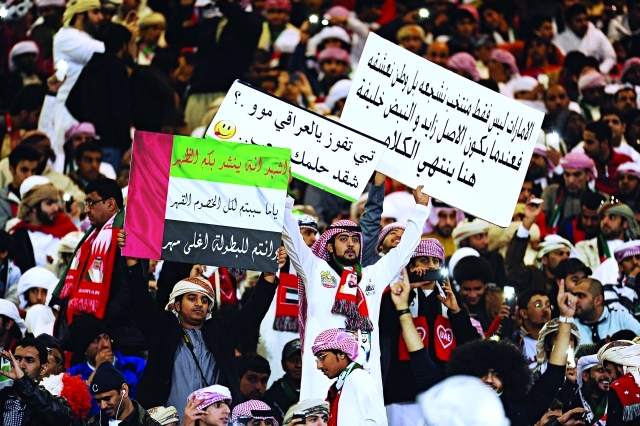 الامارات ليس فقط منتخب نشجعه بل وطن نعشقه
فعندما يكون الاصل زايد و النبض خليفة
هنا ينتهي الكلام
تبي تفوز يالعراقي موو .؟
شقد حلمك
ينشد بكم الظهر
ياما سببتم لكل الخصوم القهر
وانتم للبطولة اغلى مهر
BAHRAIN
UAE